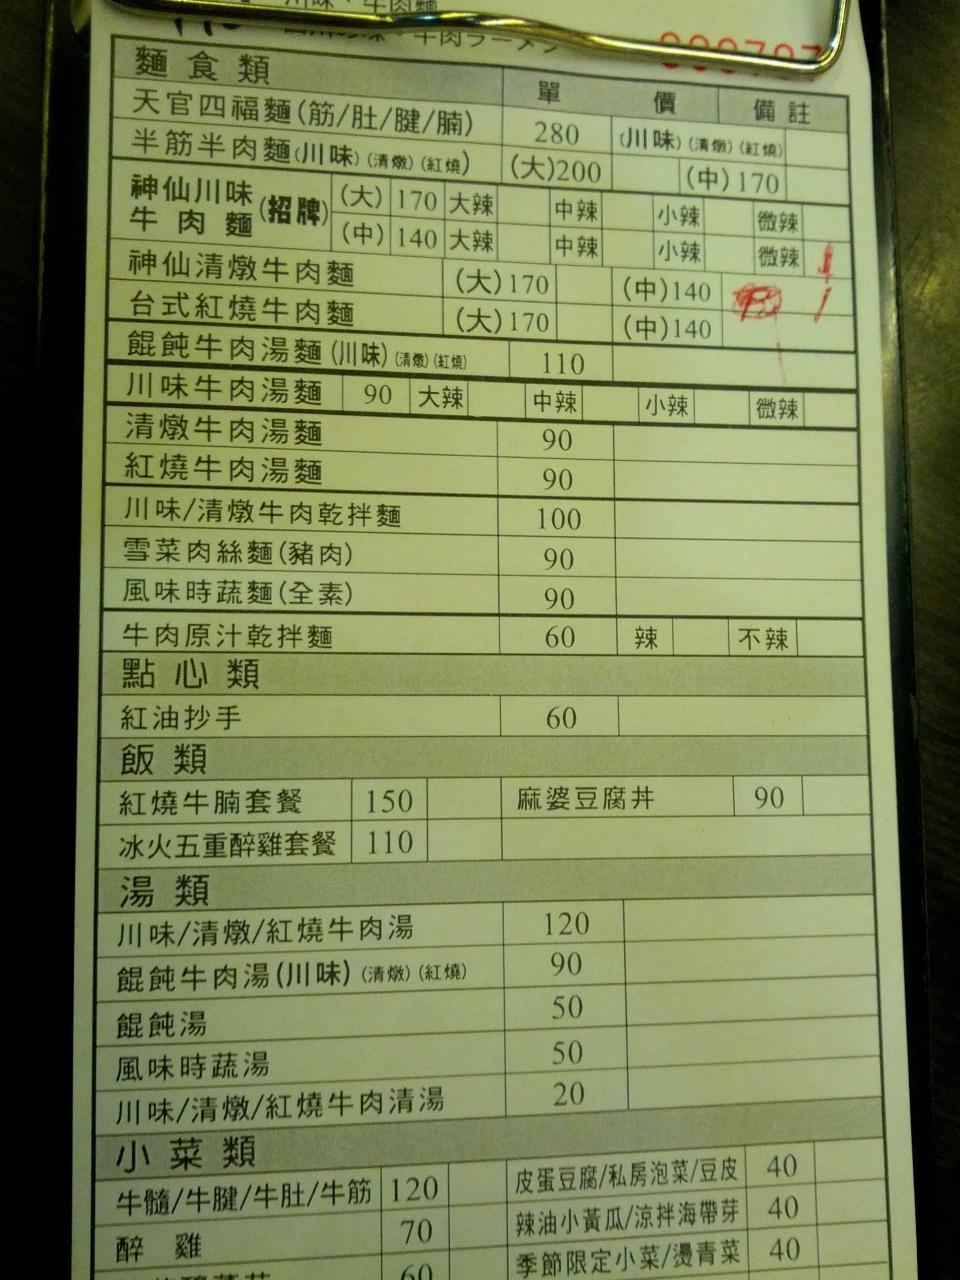 麵食類 單 價 備註
天官四福麵(筋/肚/腱/腩) 280 (川味)(清燉)(紅燒)
半筋半肉麵(川味)(清燉)(紅燒) (大)200 (中)170
神仙川味牛肉麵(招牌) (大) 170 大辣 中辣 小辣 微辣
(中) 140 大辣 中辣 小辣 微辣
神仙清燉牛肉麵 (大)170 (中)140
台式紅燒牛肉麵 (大)170 (中)140
餛飩牛肉湯麵(川味)(清燉)(紅燒) 110
川味牛肉湯麵 90 大辣 中辣 小辣 微辣
清燉牛肉湯麵 90
紅燒牛肉湯麵 90
川味/清燉牛肉乾拌麵 100
雪菜肉絲麵(豬肉) 90
風味時蔬麵(全素) 90
牛肉原汁乾拌麵 60 辣 不辣
點心類
紅油抄手 60
飯類
紅燒牛腩套餐 150 麻婆豆腐丼 90
冰火五重醉雞套餐 110
湯類
川味/清燉/紅燒牛肉湯 120
餛飩牛肉湯(川味)(清燉)(紅燒) 90
餛飩湯 50
風味時蔬湯 50
川味/清燉/紅燒牛肉清湯 20
小菜類
牛髓/牛腱/牛肚/牛筋 120 皮蛋豆腐/私房泡菜/豆皮 40
醉雞 70 辣油小黃瓜/涼拌海帶芽 40
60 季節限定小菜/燙青菜 40